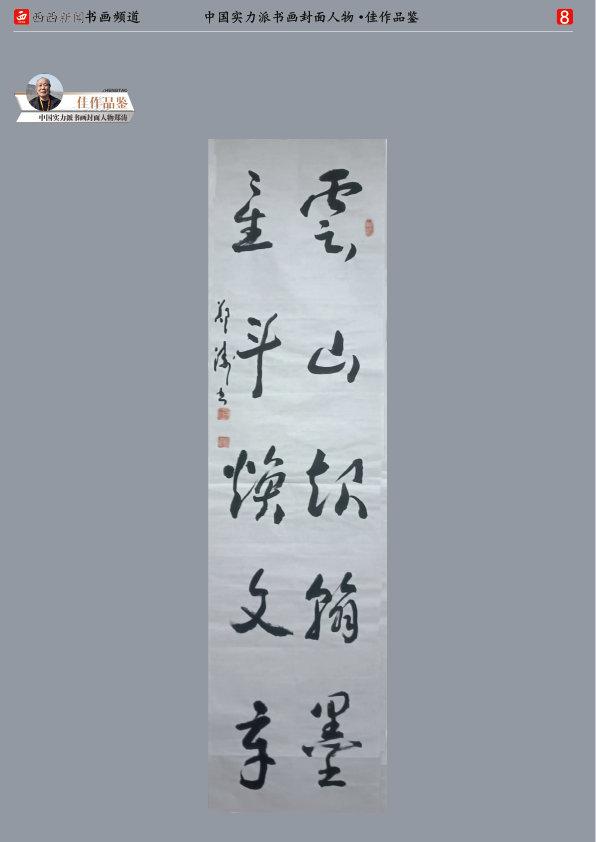 西西新闻书画频道
中国实力派书画封面人物·佳作品鉴
8
ZHENGTAO
佳作品鉴
中国实力派书画封面人物郑涛
雲山起翰墨
星斗焕文章
郑涛书